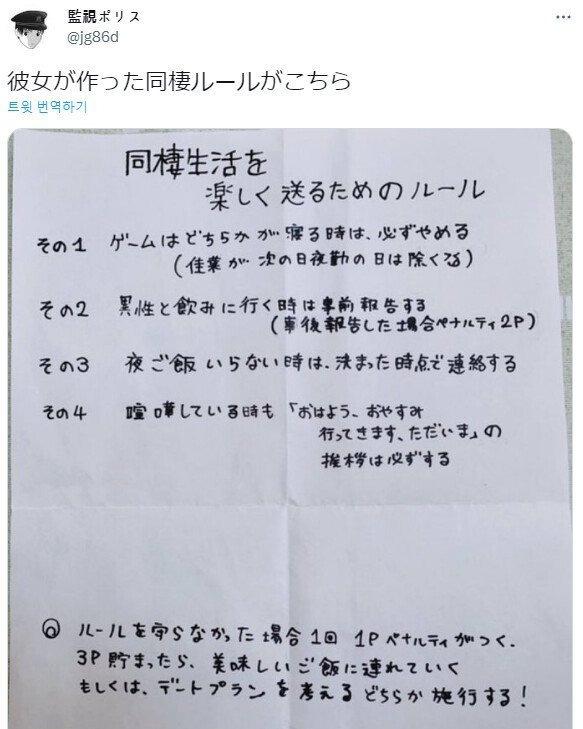 監視ポリス
@jg86d
彼女が作った同棲ルールがこちら
트윗 번역하기
同棲生活を
楽しく送るためのルール
その1 ゲームはどちらかが寝る時は、必ずやめる
(佳業が次の日夜勤の日は除くな)
その2 異性と飲みに行く時は事前報告する
(事後報告した場合ペナルティ2P)
その3 夜ご飯いらない時は、決まった時点で連絡する
その4 喧嘩している時も「おはよう、おやすみ
行ってきます、ただいま」の
挨拶は必ずする
◎ ルールを守らなかった場合1回 1Pペナルティがつく.
3P貯まったら、美味しいご飯に連れていく
もしくは、デートプランを考えるどちらか施行する!